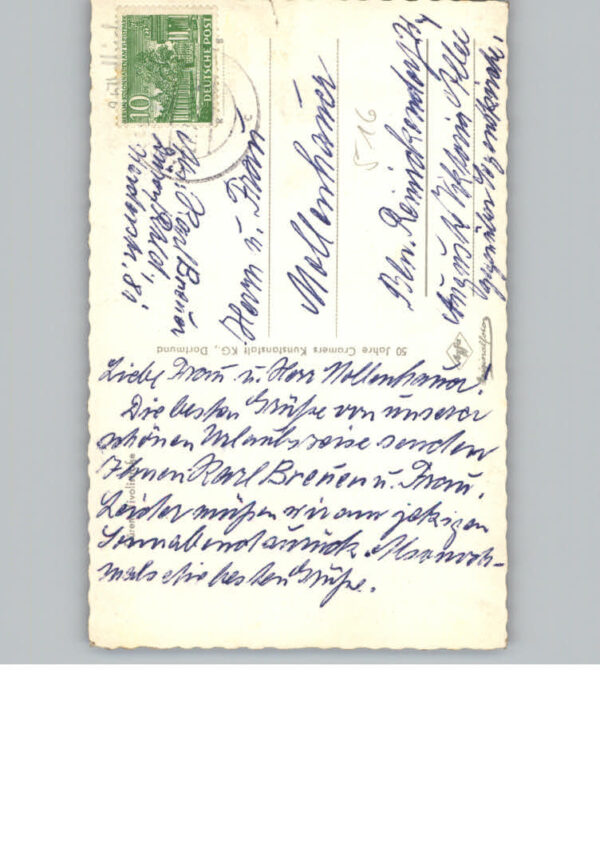 10
DEUTSCHE POST
Abs. Karl Breuer
Herrn u. Frau
Mollenhauer
Bln. Reinickendorf
516
50 Jahre Cramers Kunstanstalt KG., Dortmund
Agfa
Liebe Frau u. Herr Mollenhauer!
Die besten Grüße von unserer
schönen Urlaubsreise senden
Ihnen Karl Breuer u. Frau.
Leider müßen wir am jetzigen
Sonnabend zurück. Also noch-
mals die besten Grüße.